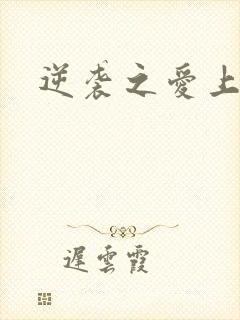 逆袭之愛上
遲雲霞